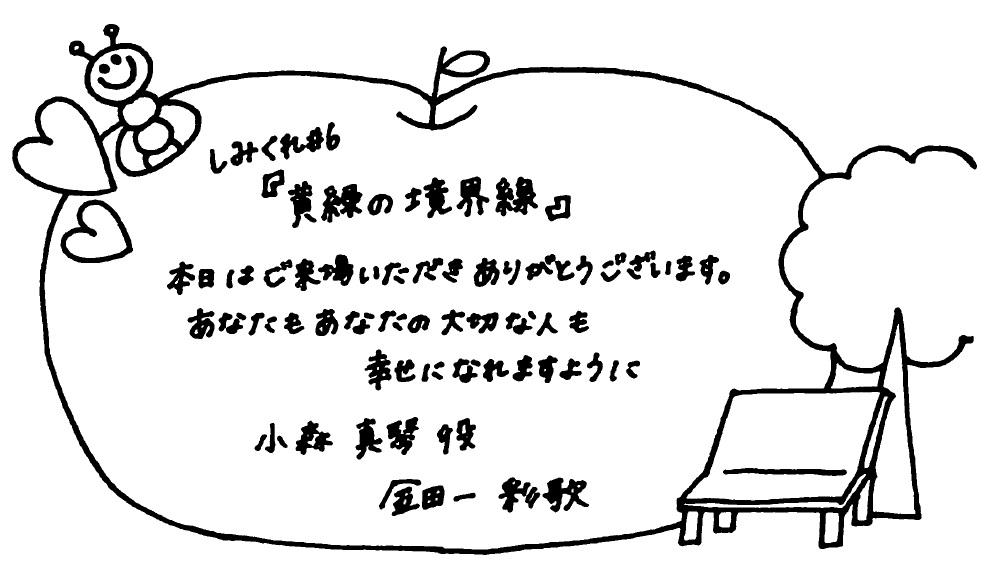 しみくれ#6
『黄緑の境界線』
本日はご来場いただきありがとうございます。
あなたもあなたの大切な人も
幸せになれますように
小森 真琴 役
五田一 彩歌